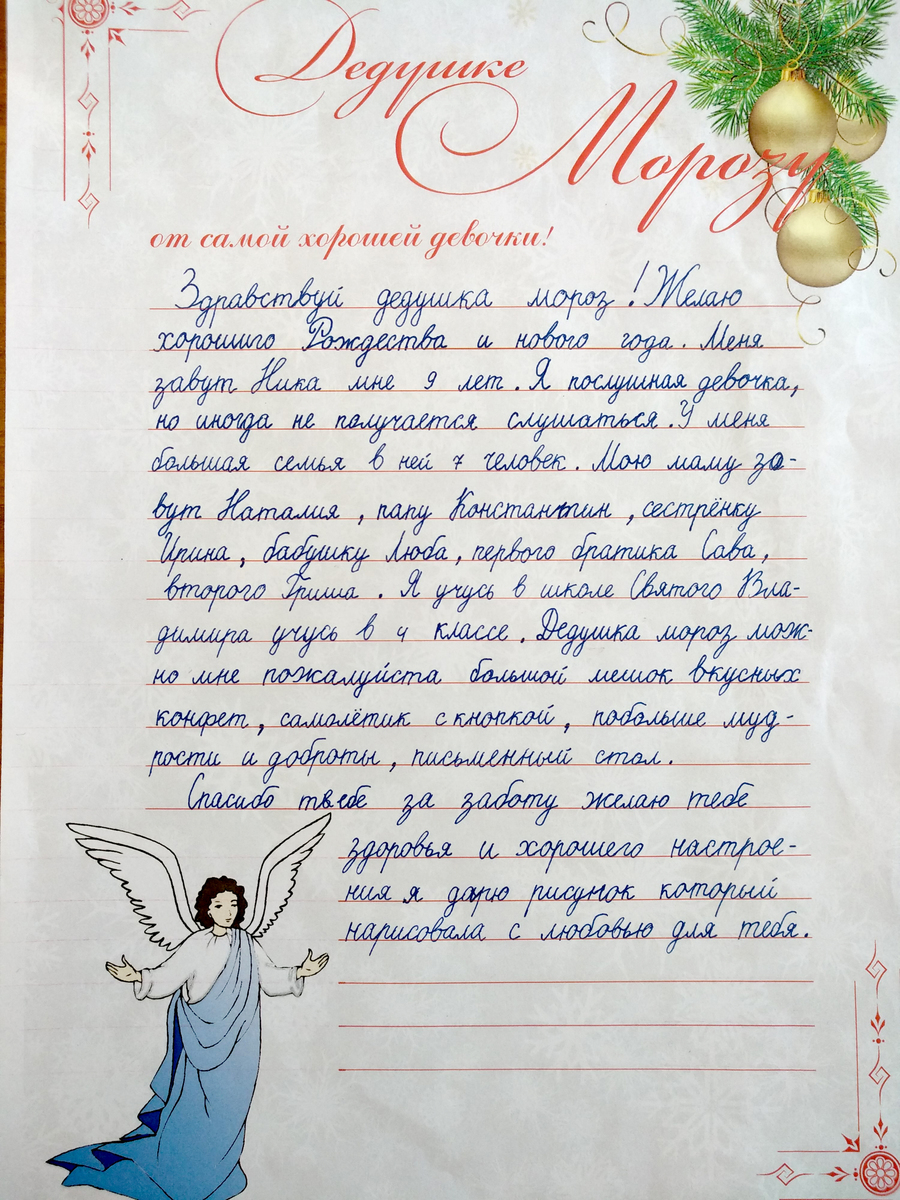 Дедушке
Морозу
от самой хорошей девочки!
Здравствуй дедушка мороз! Желаю
хорошиго Рождества и нового года. Меня
завут Ника мне 9 лет. Я послушная девочка,
но иногда не палучается слушаться. У меня
большая семья в ней 7 человек. Мою маму за-
вут Наталия, папу Константин, сестрёнку
Ирина, бабушку Люба, первого братика Сава,
второго Гриша. Я учусь в школе Святого Вла-
димира учусь в 4 классе. Дедушка мороз мож-
но мне пожалуйста большой мешок вкусных
конфет, самолётик с кнопкой, побольше муд-
рости и доброты, письменный стол.
Спасибо тебе за заботу желаю тебе
здоровья и хорошего настрое-
ния я дарю рисунок который
нарисовала с любовью для тебя.